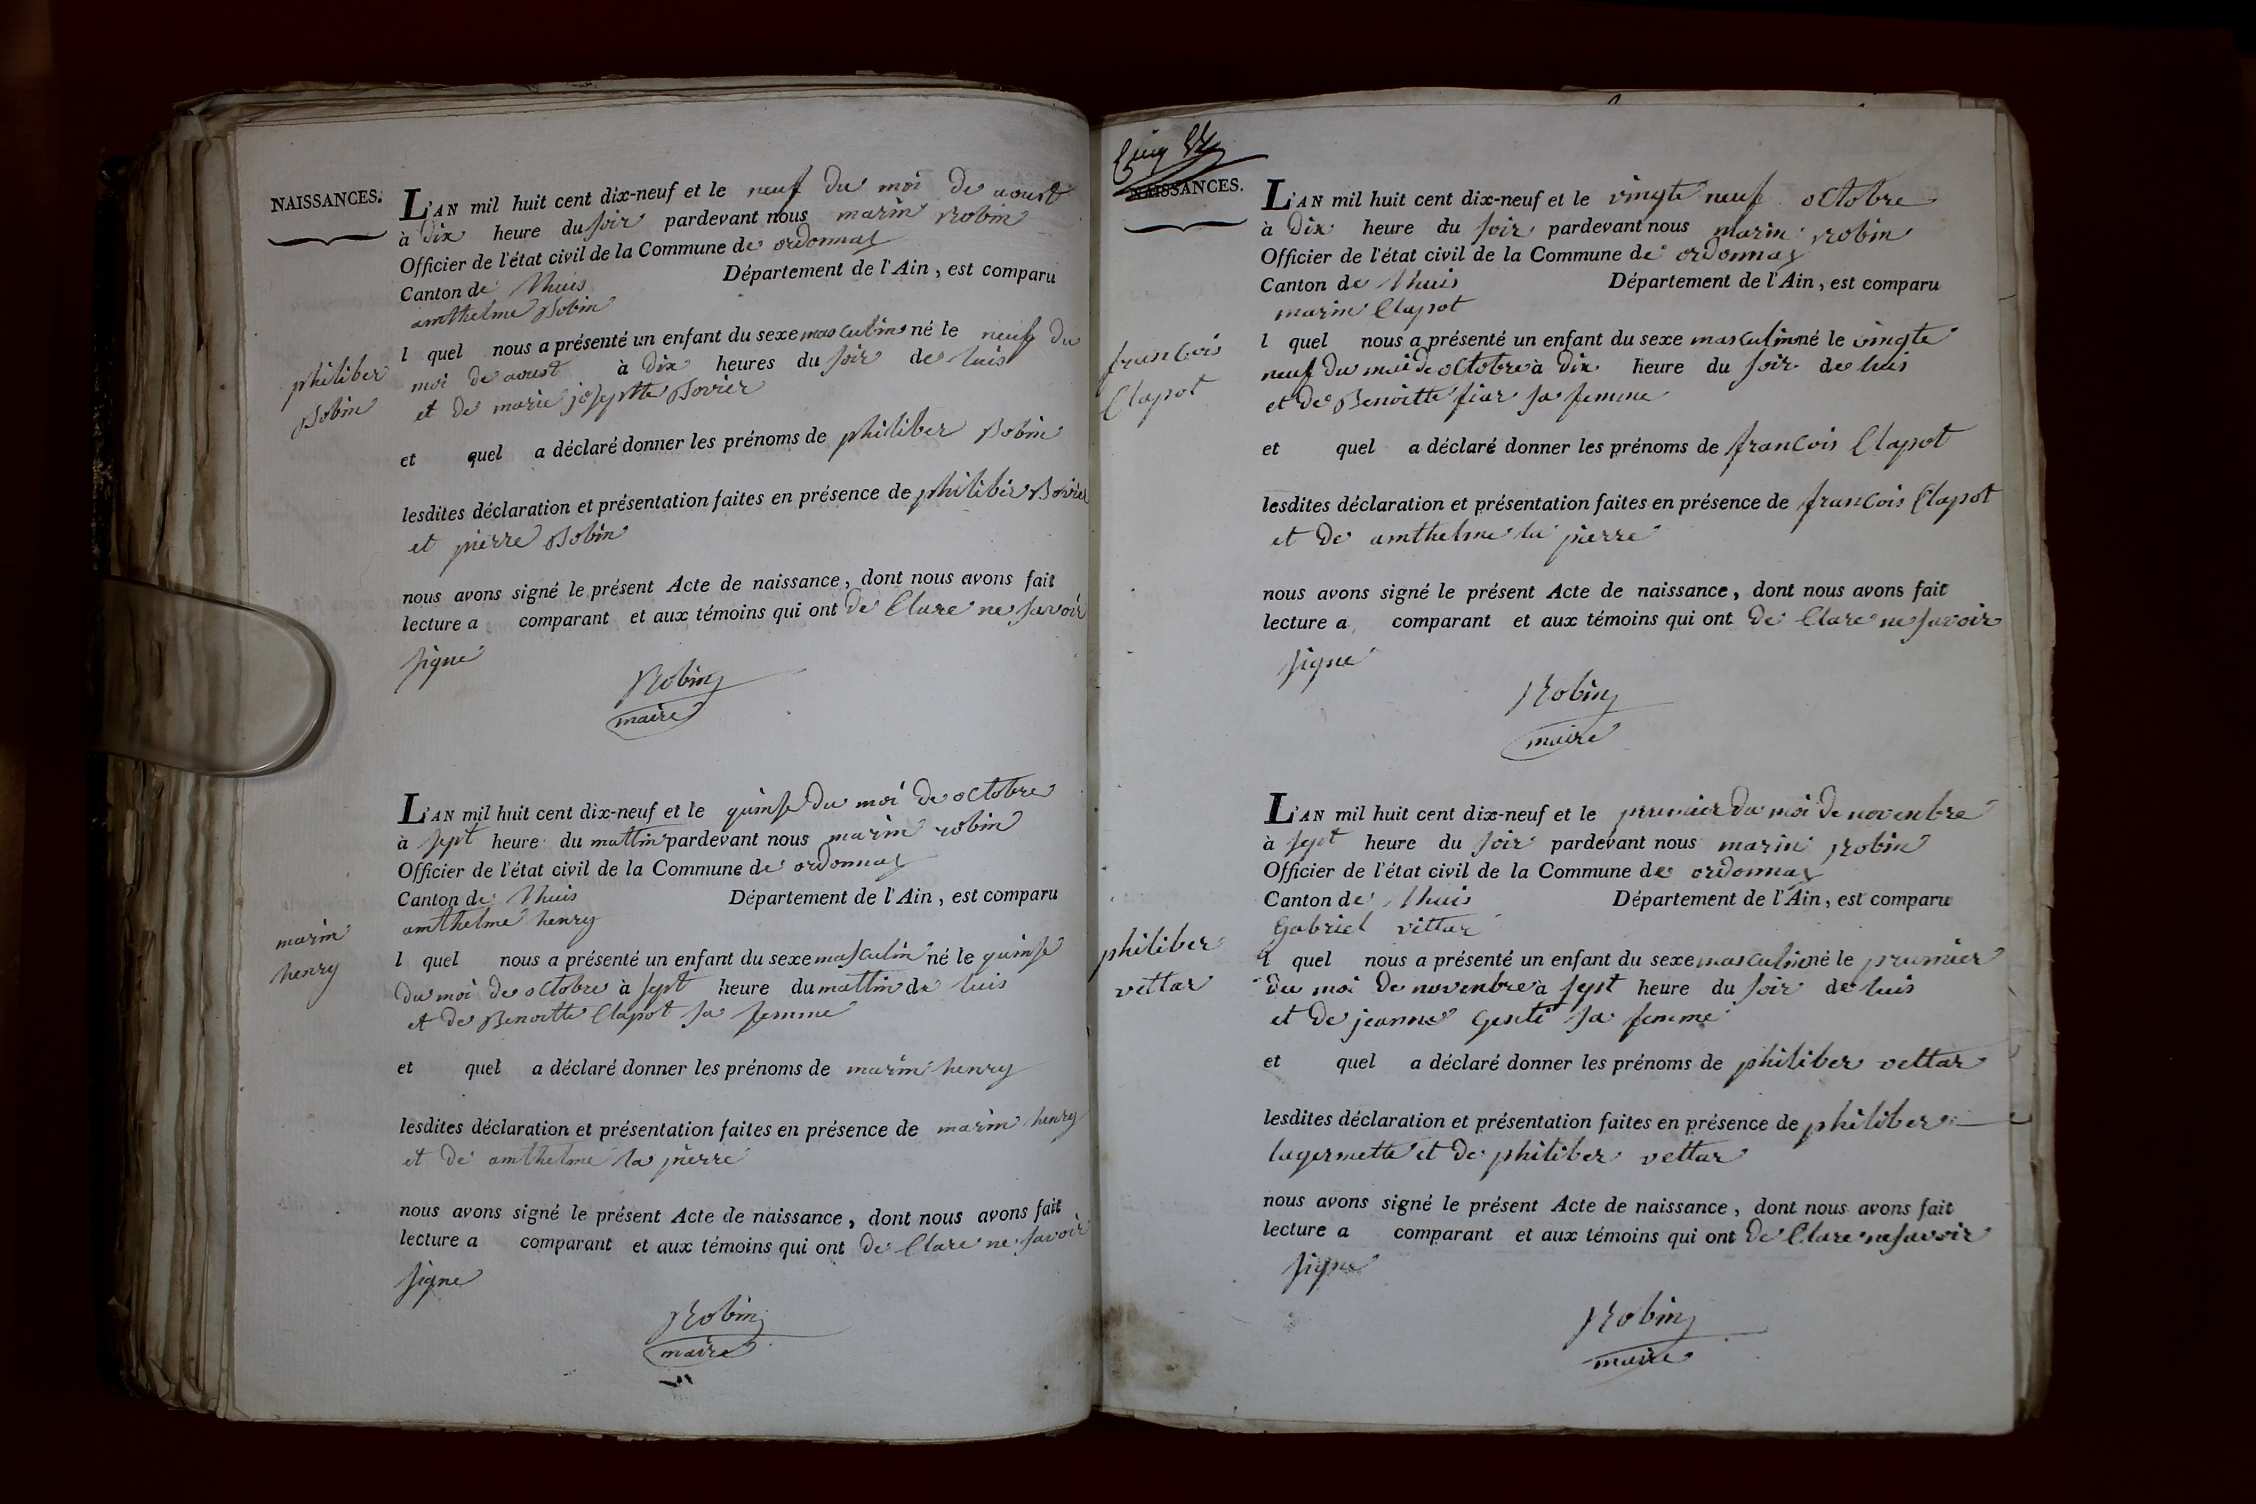 NAISSANCES.
L'AN mil huit cent dix-neuf et le neuf du moi de aoust
à dix heure du soir pardevant nous marin Robin
Officier de l'état civil de la Commune de ordonnas
Canton de Lhuis Département de l'Ain, est comparu
amthelme Bobin
l quel nous a présenté un enfant du sexe masculin né le neuf du
moi de aoust à dix heures du soir de luis
et de marie josephte Bovier
philiber
Bobin
et quel a déclaré donner les prénoms de philiber Bobin
lesdites déclaration et présentation faites en présence de philiber Bovier
et pierre Bobin
nous avons signé le présent Acte de naissance, dont nous avons fait
lecture a comparant et aux témoins qui ont de Clare ne savoir
signe
Robin
maire
L'AN mil huit cent dix-neuf et le quinse du moi de octobre
à sept heure du mattin pardevant nous marin robin
Officier de l'état civil de la Commune de ordonnas
Canton de Lhuis Département de l'Ain, est comparu
amthelme henry
marin
henry
l quel nous a présenté un enfant du sexe masculin né le quinse
du moi de octobre à sept heure du mattin de luis
et de Benoitte Clapot sa femme
et quel a déclaré donner les prénoms de marin henry
lesdites déclaration et présentation faites en présence de marin henry
et de amthelme la pierre
nous avons signé le présent Acte de naissance, dont nous avons fait
lecture a comparant et aux témoins qui ont de Clare ne savoir
signe
Robin
maire
NAISSANCES.
L'AN mil huit cent dix-neuf et le vingte neuf octobre
à dix heure du soir pardevant nous marin robin
Officier de l'état civil de la Commune de ordonnas
Canton de Lhuis Département de l'Ain, est comparu
marin Clapot
l quel nous a présenté un enfant du sexe masculin né le vingte
neuf du moi de octobre à dix heure du soir de luis
et de Benoitte fiar sa femme
francois
Clapot
et quel a déclaré donner les prénoms de francois Clapot
lesdites déclaration et présentation faites en présence de francois Clapot
et de amthelme la pierre
nous avons signé le présent Acte de naissance, dont nous avons fait
lecture a comparant et aux témoins qui ont de Clare ne savoir
signe
Robin
maire
L'AN mil huit cent dix-neuf et le prumier du moi de novenbre
à sept heure du soir pardevant nous marin Robin
Officier de l'état civil de la Commune de ordonnas
Canton de Lhuis Département de l'Ain, est comparu
Gabriel vittar
philiber
vettar
l quel nous a présenté un enfant du sexe masculin né le prumier
du moi de novenbre à sept heure du soir de luis
et de jeanne Genti sa femme
et quel a déclaré donner les prénoms de philiber vettar
lesdites déclaration et présentation faites en présence de philiber
lagermette et de philiber vettar
nous avons signé le présent Acte de naissance, dont nous avons fait
lecture a comparant et aux témoins qui ont de Clare ne savoir
signe
Robin
maire